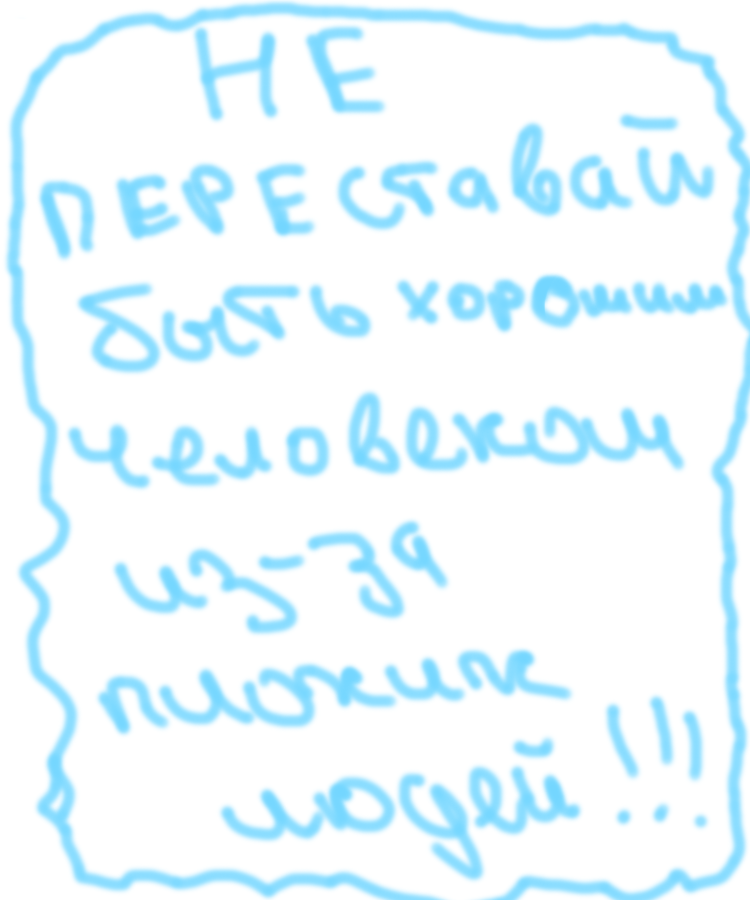 НЕ
ПЕРЕставай
быть хорошим
человеком
из-за
плохих
людей!!!